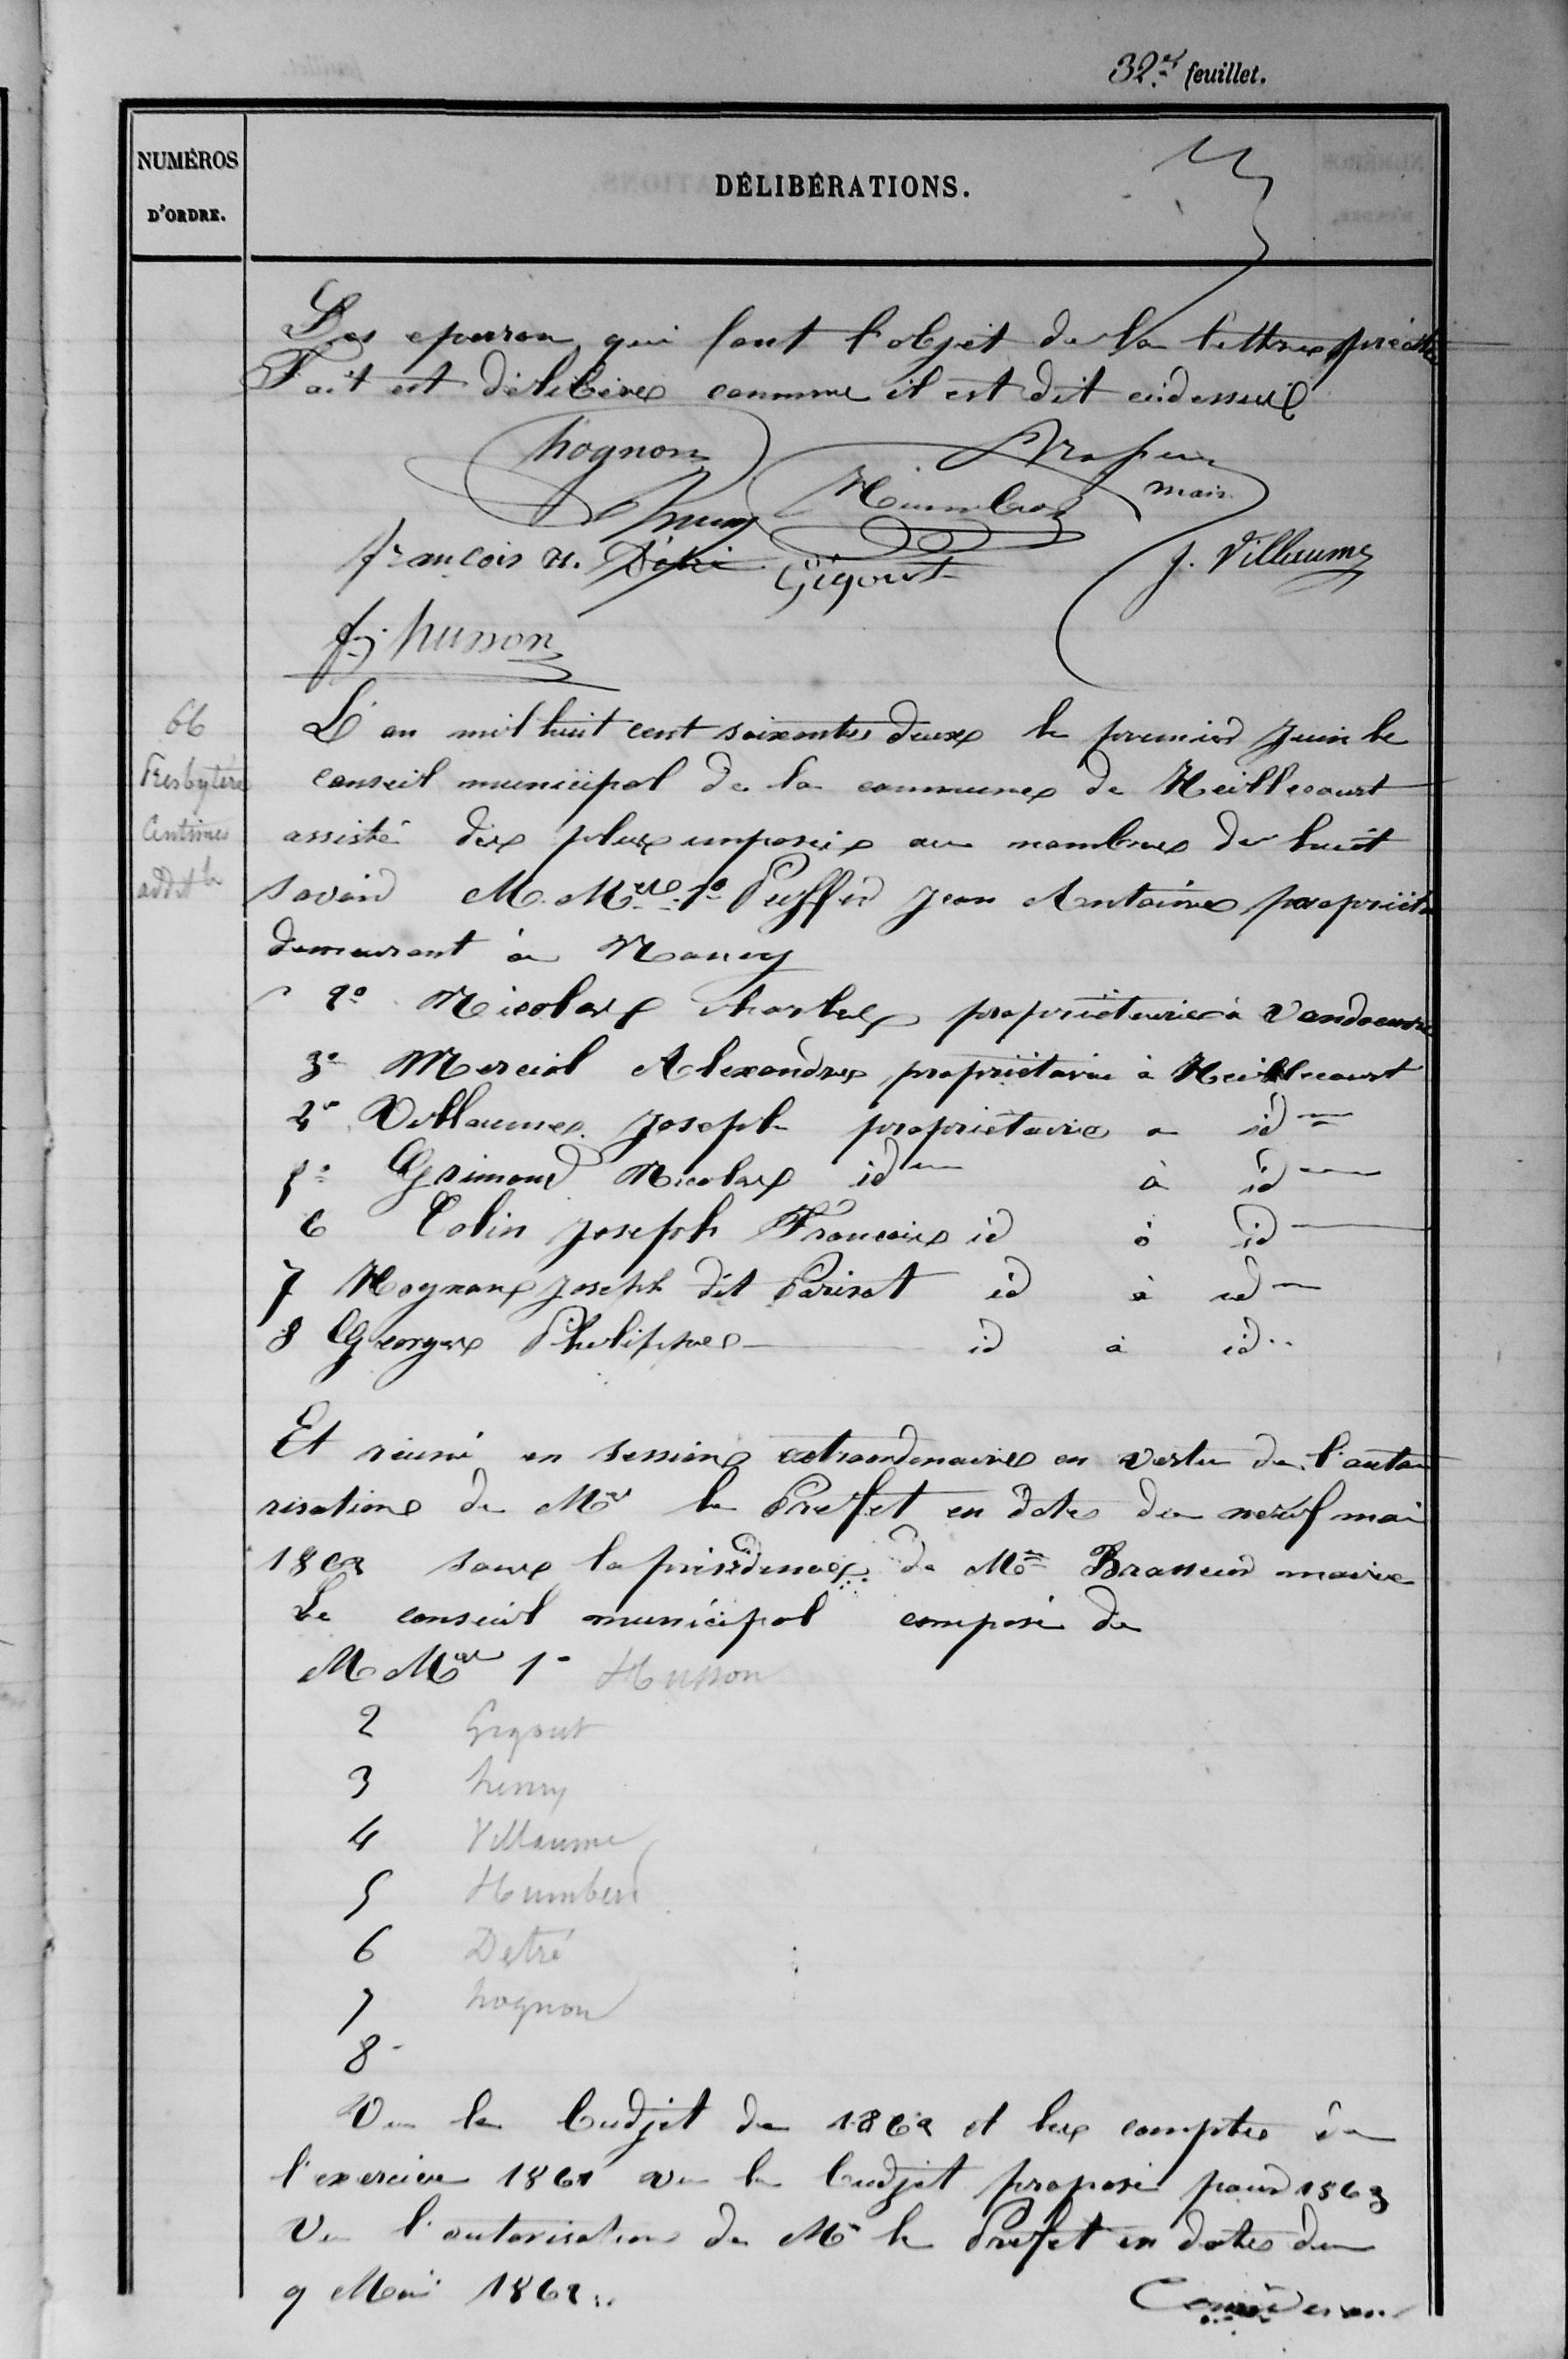 32.e feuillet.
NUMÉROS
D'ORDRE.
DÉLIBÉRATIONS.
Des eperon qui font l'objet de la lettre précitée
Fait et délibéré comme il est dit cidessus
hognon
Brasseur
maire
Henry
Humbert
françois n. Détré
Gigout
J. Villaume
fj. husson
66
Presbytère
Centimes
addit.ls
L'an mil huit cent soixante deux le premier juin le
conseil municipal de la commune de Heillecourt
assisté des plus imposés au nombre de huit
savoir M. Mrs 1º Puffer Jean Antoine propriétre
demeurant à Nancy
2º Nicolas Charles propriétaire à Vandoeuvre
3º Merciol Alexandre propriétaire à Heillecourt
4º Villaume Joseph propriétaire a id
5º Grimond Nicolas id à id
6 Colin Joseph Francois id à id
7 Hognon Joseph dit Parisot id à id
8 Georges Philippe id à id
Et réuni en session extraordinaire en vertu de l'auto
risation de Mr le Préfet en date du neuf mai
1862 sous la présidence de Mr Brasseur maire
Le conseil municipal composé de
M Mrs 1º Husson
2 Gigout
3 henry
4 Villaume
5 Humbert
6 Detré
7 hognon
8
Vu le budjet de 1862 et les comptes de
l'exercice 1861 vu le budjet proposé pour 1863
Vu l'autorisation de Mr le Préfet en date du
9 Mai 1862
Considérant